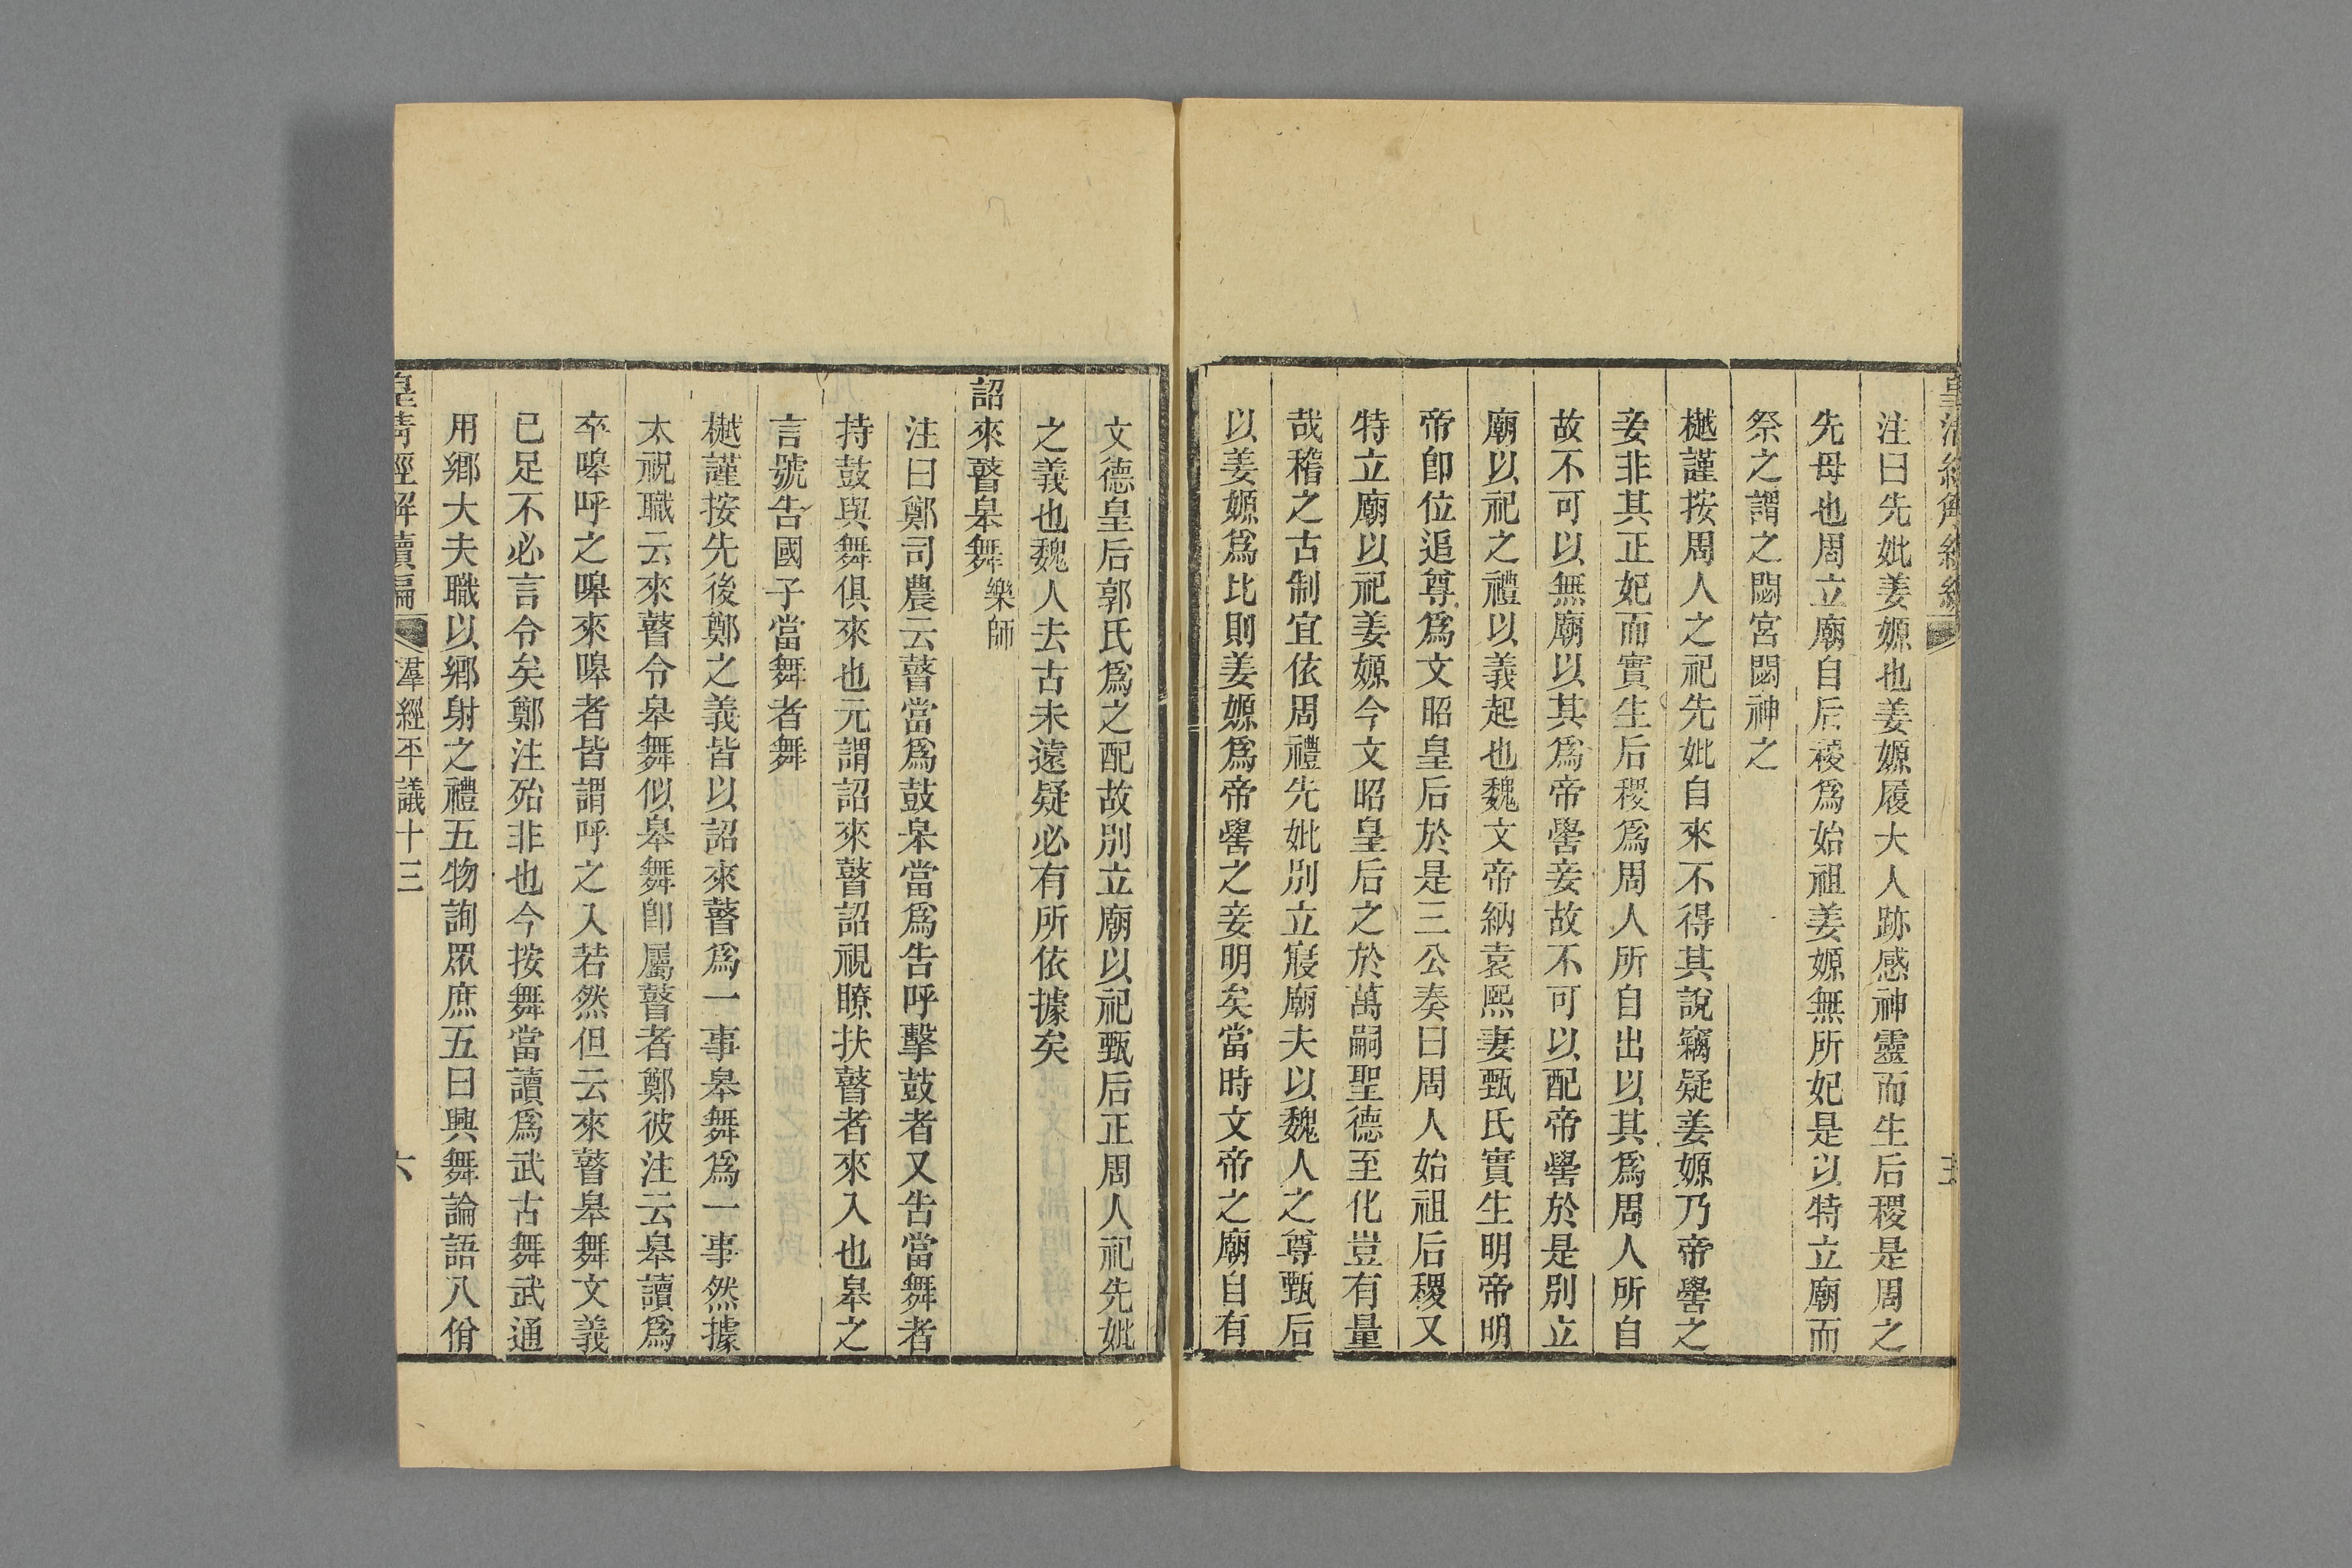 注曰先妣姜嫄也姜嫄履大人跡感神靈而生后稷是周之
先母也周立廟自后稷爲始祖姜嫄無所妃是以特立廟而
祭之謂之閟宮閟神之
樾謹按周人之祀先妣自來不得其說竊疑姜嫄乃帝嚳之
妾非其正妃而實生后稷爲周人所自出以其爲周人所自
故不可以無廟以其爲帝嚳妾故不可以配帝嚳於是別立
廟以祀之禮以義起也魏文帝納袁熙妻甄氏實生明帝明
帝卽位追尊爲文昭皇后於是三公奏曰周人始祖后稷又
特立廟以祀姜嫄今文昭皇后之於萬嗣聖德至化豈有量
哉稽之古制宜依周禮先妣別立寢廟夫以魏人之尊甄后
以姜嫄爲比則姜嫄爲帝嚳之妾明矣當時文帝之廟自有
文德皇后郭氏爲之配故別立廟以祀甄后正周人祀先妣
之義也魏人去古未遠疑必有所依據矣
詔來瞽皋舞樂師
注曰鄭司農云瞽當爲鼓皋當爲告呼擊鼓者又告當舞者
持鼓與舞俱來也元謂詔來瞽詔視瞭扶瞽者來入也皋之
言號告國子當舞者舞
樾謹按先後鄭之義皆以詔來瞽爲一事皋舞爲一事然據
太祝職云來瞽令皋舞似皋舞卽屬瞽者鄭彼注云皋讀爲
卒嗥呼之嗥來嗥者皆謂呼之入若然但云來瞽皋舞文義
已足不必言令矣鄭注殆非也今按舞當讀爲武古舞武通
用鄉大夫職以鄉射之禮五物詢眾庶五曰興舞論語八佾
皇清經解續編 羣經平議十三 六